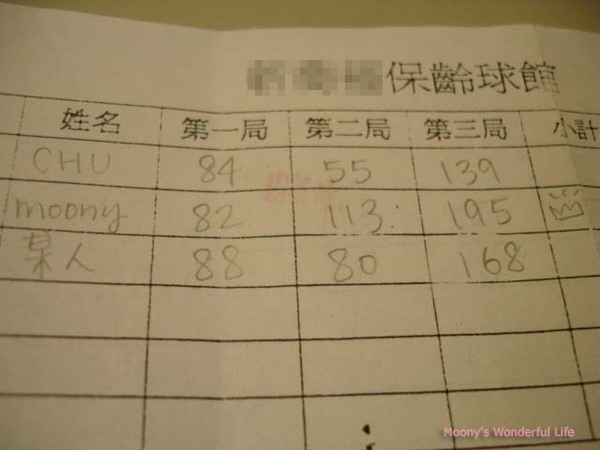 保齡球館
姓名 第一局 第二局 第三局 小計
CHU 84 55 139
moony 82 113 195
某人 88 80 168
Moony's Wonderful Life